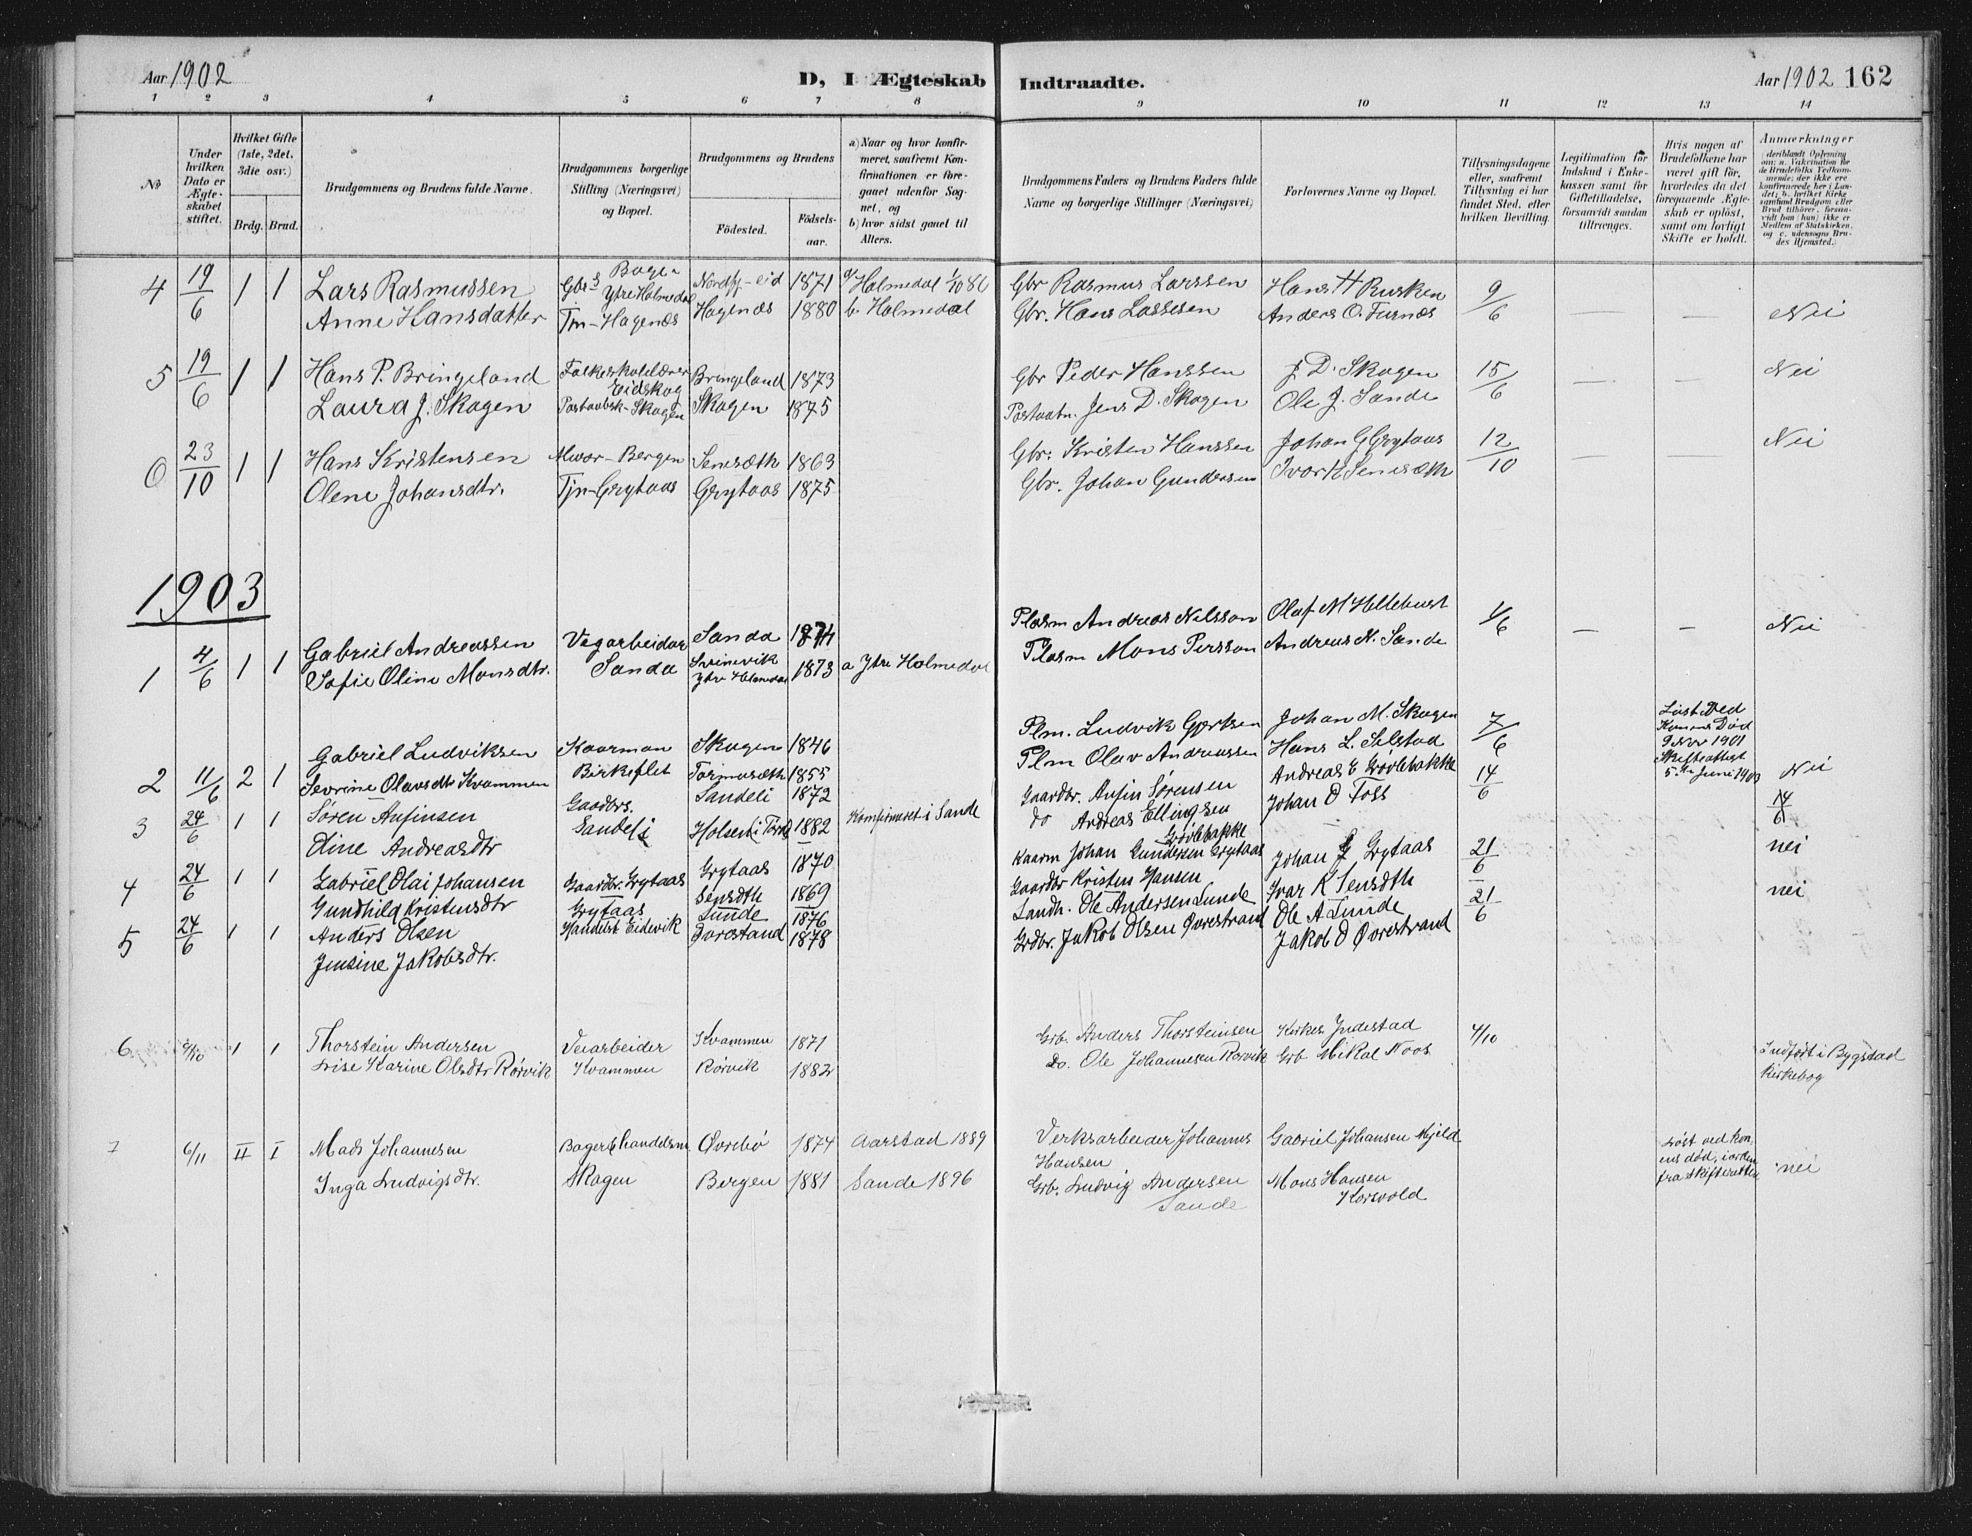 Aar 1902
D, I Ægteskab Indtraadte.
Aar 1902 162
1 2 3 4 5 6 7 8 9 10 11 12 13 14
No
Under hvilken Dato er Ægteskabet stiftet.
Hvilket Gifte (1ste, 2det, 3die osv.)
Brdg. Brud.
Brudgommens og Brudens fulde Navne.
Brudgommens borgerlige Stilling (Næringsvei) og Bopæl.
Brudgommens og Brudens
Fødested.
Fødselsaar.
a) Naar og hvor konfirmeret, saafremt Konfirmationen er foregaaet udenfor Sognet, og
b) hvor sidst gaaet til Alters.
Brudgommens Faders og Brudens Faders fulde Navne og borgerlige Stillinger (Næringsvei)
Forlovernes Navne og Bopæl.
Tillysningsdagene eller, saafremt Tillysning ei har fundet Sted, efter hvilken Bevilling.
Legitimation for Indskud i Enkekassen samt for Giftetilladelse, forsaavidt saadan tiltrænges.
Hvis nogen af Brudefolkene har været gift før, hvorledes da det foregaaende Ægteskab er opløst, samt om lovligt Skifte er holdt.
Anmærkninger
4 19/6 1 1 Lars Rasmussen Gbr s Ytre Holmedal Nordfj-eid 1871 a/ Holmedal Gbr Rasmus Larssen Hans H Rusken 9/6
Anne Hansdatter Tjn-Hagenæs Hagenæs 1880 b. Holmedal Gbr. Hans Lassesen Anders O. Furnæs — — Nei
5 19/6 1 1 Hans P. Bringeland Folkeskolelærer Eidskog Bringeland 1873 Gbr Peder Hanssen J D. Skagen 15/6 — — Nei
Laura J. Skagen Skagen Skagen 1875 Jens D. Skagen Ole J. Sande
6 23/10 1 1 Hans Kristensen Bergen Senesæth 1863 Gbr. Kristen Hanssen Johan G Grytaas 12/10 — — Nei
Olene Johansdtr. Tjn-Grytaas Grytaas 1875 Gbr. Johan Gundersen Ivar K Senesæth
1903
1 4/6 1 1 Gabriel Andreassen Vegarbeidar Sanda 1874 Plasm Andreas Nilsson Olaf M Hellebust 1/6 — — Nei
Sofie Oline Monsdtr. Sanda Svinevik Ytre Holmedal 1873 a Ytre Holmedal Plasm Mons Persson Andreas N. Sande
2 11/6 2 1 Gabriel Ludviksen Kaarman Skagen 1846 Plm. Ludvik Gjertsen Johan M. Skagen 7/6 Løst ved Konens Død 9 Nov 1901 Skifteattest 5te Juni 1903 Nei
Sevrine Olavsdtr Kvammen Birkeflet Tormusæth 1855 Plm Olav Andreassen Hans L. Selstad
3 24/6 1 1 Søren Anfinsen Gaardbr. Sandeli 1872 Konfirmeret i Sande Gaardbr. Anfin Sørensen Andreas E Grøvlebakke 14/6 14/6
Eline Andreasdtr Sandeli Holsen i Førde 1882 do Andreas Ellingsen Grøvlebakke Johan O Foss
4 24/6 1 1 Gabriel Olai Johansen Gaardbr. Grytaas Grytaas 1870 Kaarm Johan Gundersen Grytaas Johan G Grytaas 21/6 nei
Gundhild Kristensdtr Grytaas Sensdth 1869 Gaardbr Kristen Hansen Ivar K Sensdth
5 24/6 1 1 Anders Olsen Handelst Eidevik Lunde 1876 Landh. Ole Andersen Lunde Ole A Lunde 21/6 nei
Jensine Jakobsdtr. Øvrestrand 1878 Grdbr. Jakob Olsen Øvrestrand Jakob O Øvrestrand
6 1 1 Thorstein Andersen Veiarbeider Kvammen 1871 Grb. Anders Thorsteinsen Kirkes. Indestad 4/10 Indført i Bygstad Kirkebog
Lise Karine Olsdtr Rørvik Kvammen Rørvik 1882 Do. Ole Johannesen Rørvik Grb Mikal Noos
7 6/11 II I Mads Johannesen Bager & handelsm Øvrebø 1874 Aarstad 1889 Verksarbeider Johannes Hansen Gabriel Johansen Mjeld Løst ved konens død, fra Skifteretten nei
Inga Ludvigsdtr. Skagen Bergen 1881 Sande 1896 Grb. Ludvig Andersen Sande Mons Hansen Korsvold